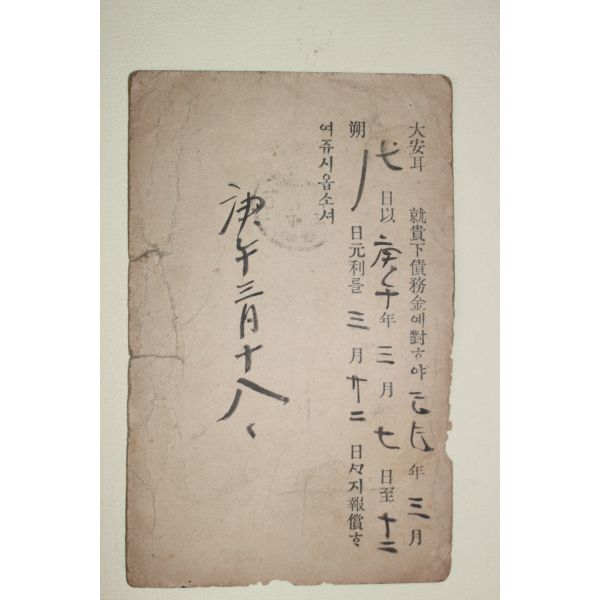 大安耳 就貴下債務金에對ᄒᆞ야 己巳年三月
七日以庚午年三月七日至十二
朔 日元利를三月卄二日ᄭᆞ지報償ᄒᆞ
여쥬시옵소셔
庚午三月十八